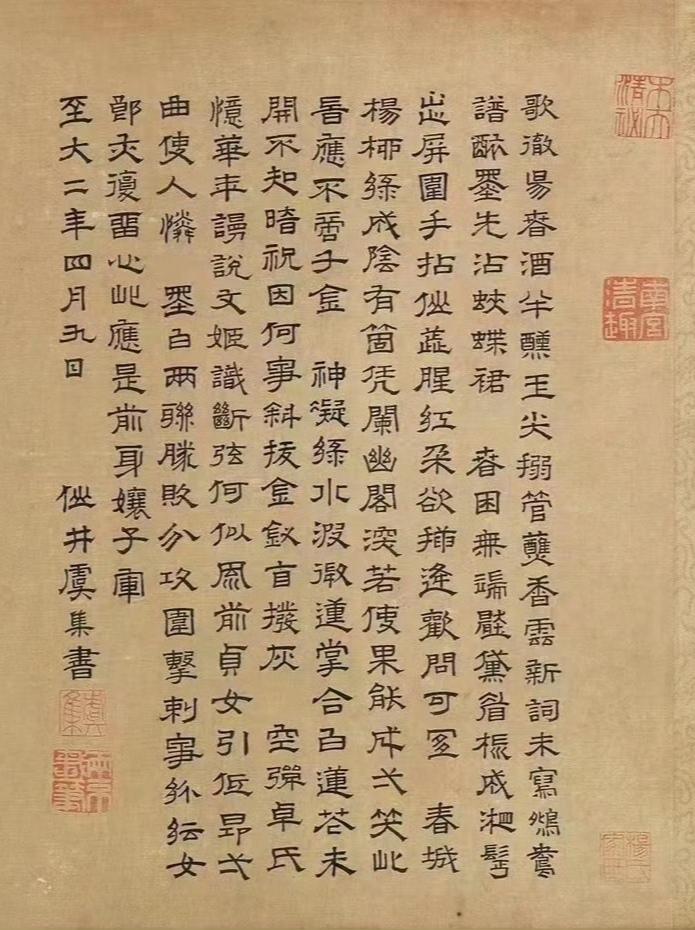 歌徹昜春酒半醺玉尖搦管蘸香雲新詞未寫鴛鴦
譜醉墨先沾蛺蝶裙　春困無端壓黛眉梳成髻
屏圍手拈仙蕊腥紅朵欲插逢歡問可冝　春城
楊柳綠成陰有箇凭闌幽閣深若使果能成弌笑此
應不吝千金　神凝綠水微蓮掌合白蓮花未
開不知暗祝因何事斜拔金釵盲撥灰　空彈卓氏
憶華年謾說文姬識斷弦何似風前貞女引伍昂弌
曲使人憐　墨白兩聯勝敗分攻圍擊刺事紛紜女
郎亦復留心此應是前身孃子軍
至大二年四月九日　仙井虞集書
虞集